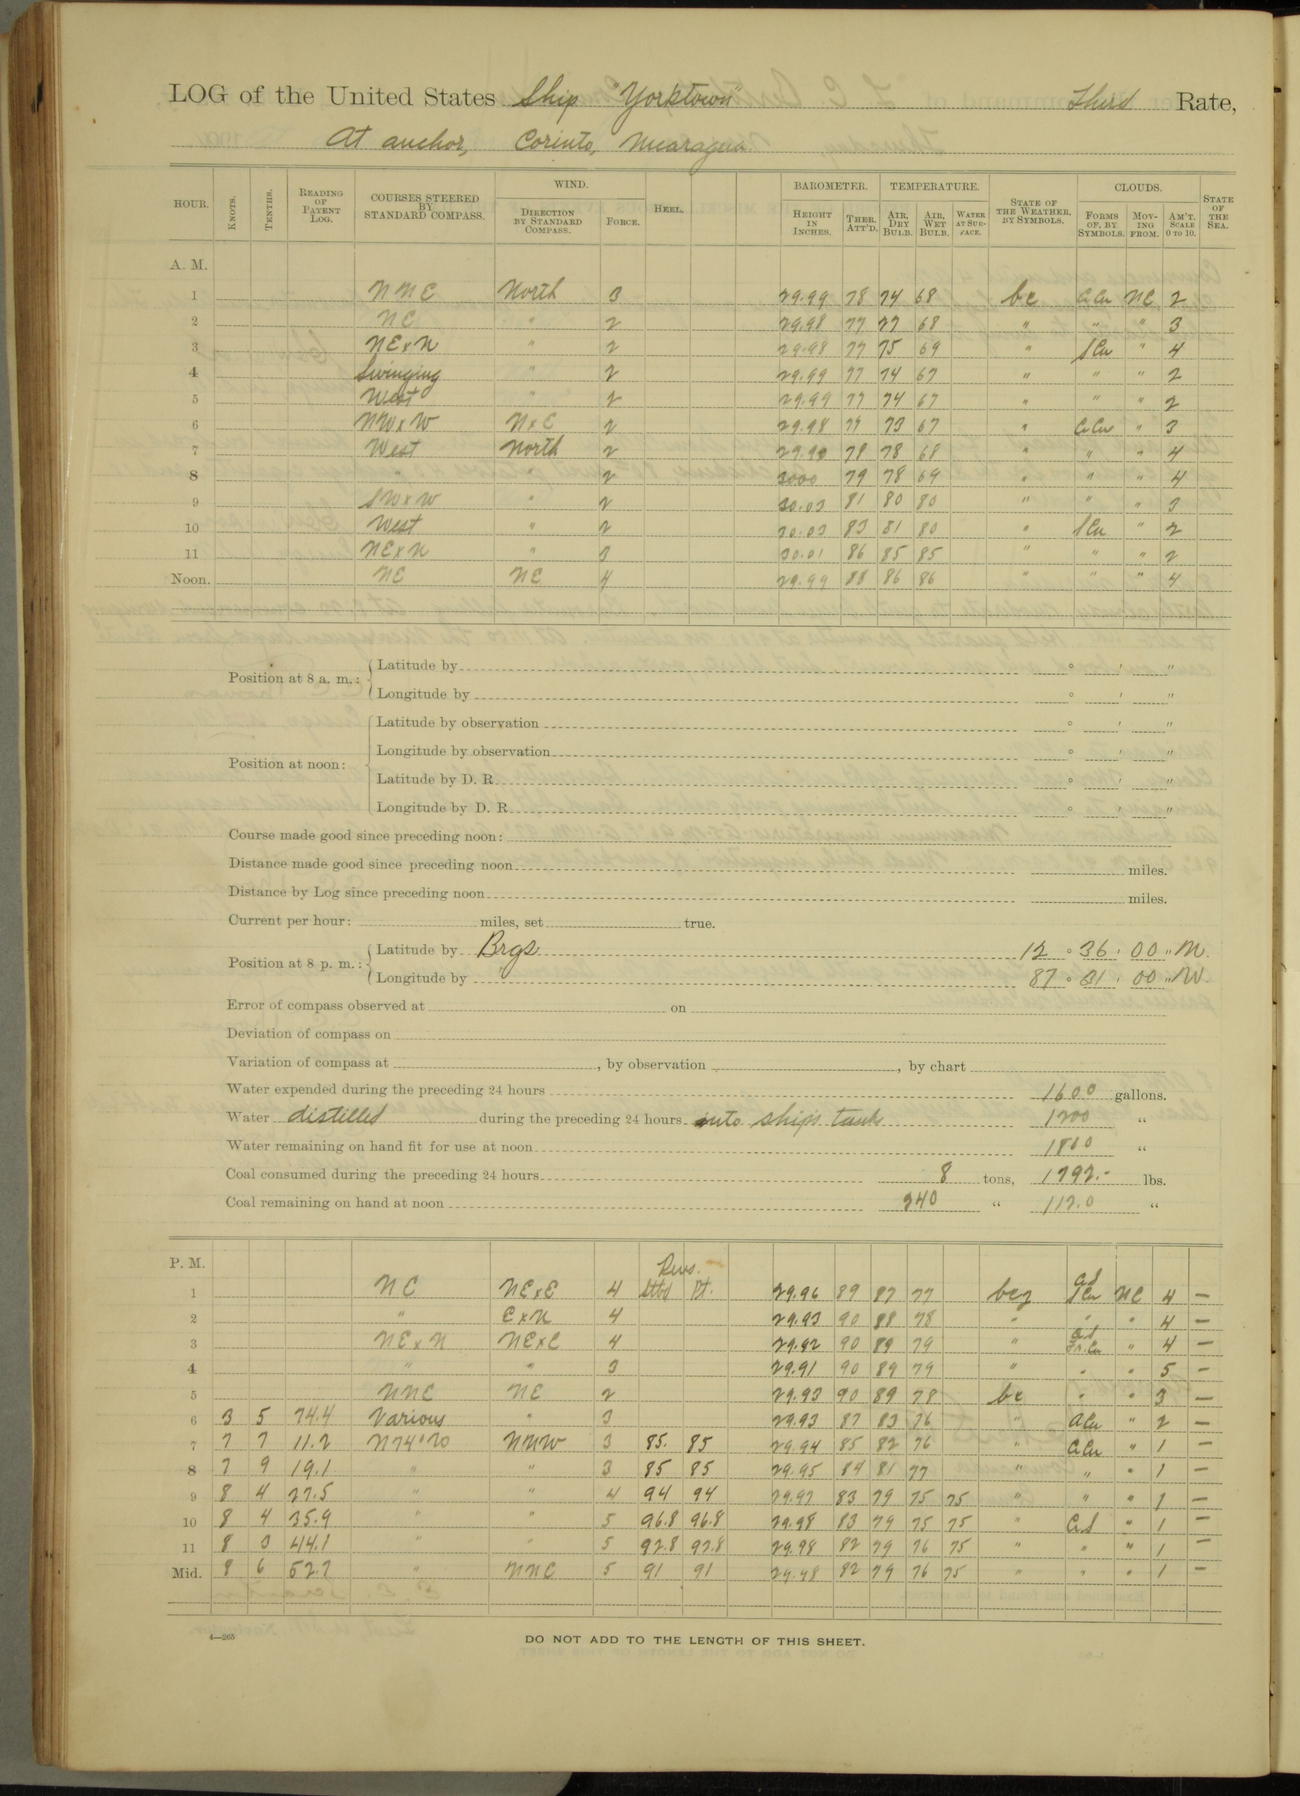 LOG of the United States Ship "Yorktown" Third Rate,
At anchor, Corinto, Nicaragua
HOUR. KNOTS. TENTHS. READING OF PATENT LOG. COURSES STEERED BY STANDARD COMPASS. WIND. DIRECTION BY STANDARD COMPASS. FORCE. HEEL. BAROMETER. HEIGHT IN INCHES. THER. ATT'D. TEMPERATURE. AIR, DRY BULB. AIR, WET BULB. WATER AT SURFACE. STATE OF THE WEATHER, BY SYMBOLS. CLOUDS. FORMS OF, BY SYMBOLS. MOVING FROM. AM'T. SCALE 0 TO 10. STATE OF THE SEA.
A. M.
1 NNE North 3 29.99 78 74 68 bc CiCu NE 2
2 NE " 2 29.98 77 77 68 " " " 3
3 NExN " 2 29.98 77 75 69 " SCu " 4
4 Swinging " 2 29.99 77 74 67 " " " 2
5 West " 2 29.99 77 74 67 " " " 2
6 NWxW NxE 2 29.98 77 73 67 " CiCu " 3
7 West North 2 29.99 78 78 68 " " " 4
8 " " 2 3000 79 78 69 " " " 4
9 SWxW " 2 30.03 81 80 80 " " " 3
10 West " 2 30.03 83 81 80 " SCu " 2
11 NExN " 3 30.01 86 85 85 " " " 2
Noon. NE NE 4 29.99 88 86 86 " " " 4
Position at 8 a. m.: Latitude by ° ' "
Longitude by ° ' "
Latitude by observation ° ' "
Position at noon: Longitude by observation ° ' "
Latitude by D. R. ° ' "
Longitude by D. R. ° ' "
Course made good since preceding noon:
Distance made good since preceding noon miles.
Distance by Log since preceding noon miles.
Current per hour: miles, set true.
Position at 8 p. m.: Latitude by Brgs 12 ° 36 ' 00 " N.
Longitude by 87 ° 31 ' 00 " W.
Error of compass observed at on
Deviation of compass on
Variation of compass at , by observation , by chart
Water expended during the preceding 24 hours 1600 gallons.
Water distilled during the preceding 24 hours into ships tank 1200 "
Water remaining on hand fit for use at noon 1800 "
Coal consumed during the preceding 24 hours 8 tons, 1792.- lbs.
Coal remaining on hand at noon 240 " 112.0 "
P. M. Revs.
1 NE NExE 4 Stbd Pt. 29.96 89 87 77 bcz SCu NE 4 —
2 " ExN 4 29.93 90 88 78 " " " 4 —
3 NExN NExE 4 29.92 90 89 79 " Fr.Cu " 4 —
4 " " 3 29.91 90 89 79 " " " 5 —
5 NNE NE 2 29.93 90 89 78 bc " " 3 —
6 3 5 74.4 Various " 3 29.93 87 83 76 " ACu " 2 —
7 7 7 11.2 N74°20 NNW 3 85. 85 29.94 85 82 76 " CiCu " 1 —
8 7 9 19.1 " " 3 85 85 29.95 84 81 77 " " " 1 —
9 8 4 27.5 " " 4 94 94 29.97 83 79 75 75 " " " 1 —
10 8 4 35.9 " " 5 96.8 96.8 29.98 83 79 75 75 " CiS " 1 —
11 8 3 44.1 " " 5 92.8 92.8 29.98 82 79 76 75 " " " 1 —
Mid. 8 6 52.7 " NNE 5 91 91 29.98 82 79 76 75 " " " 1 —
4—265
DO NOT ADD TO THE LENGTH OF THIS SHEET.